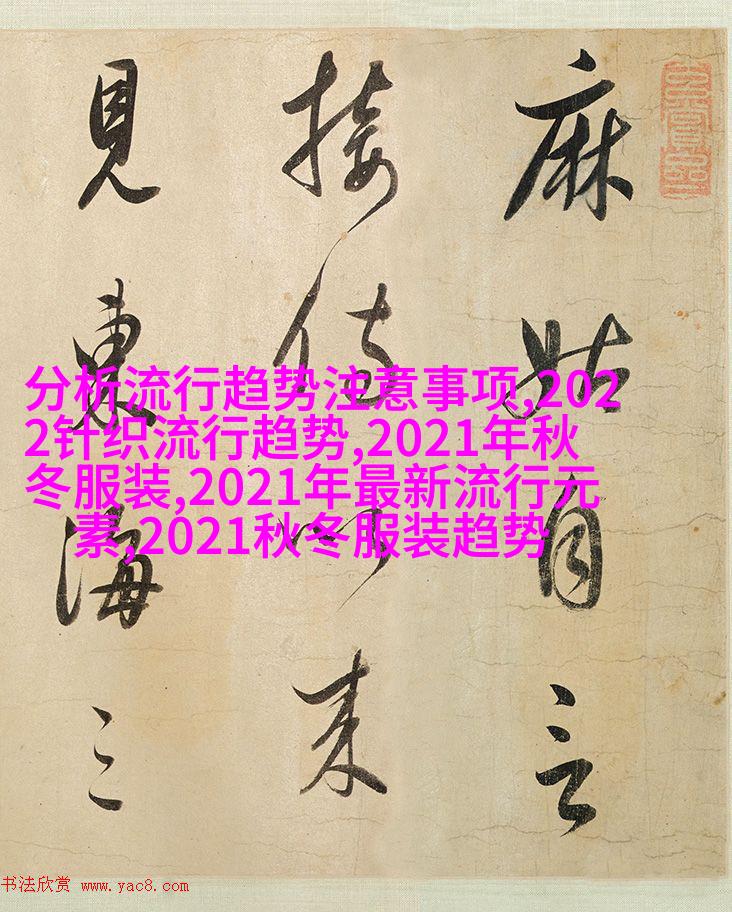 麻姑自言
接侍以来
見東海三
分析流行趋势注意事项,202
2针织流行趋势,2021年秋
冬服装,2021年最新流行元
素,2021秋冬服装趋势
书法欣赏 www.yac8.com